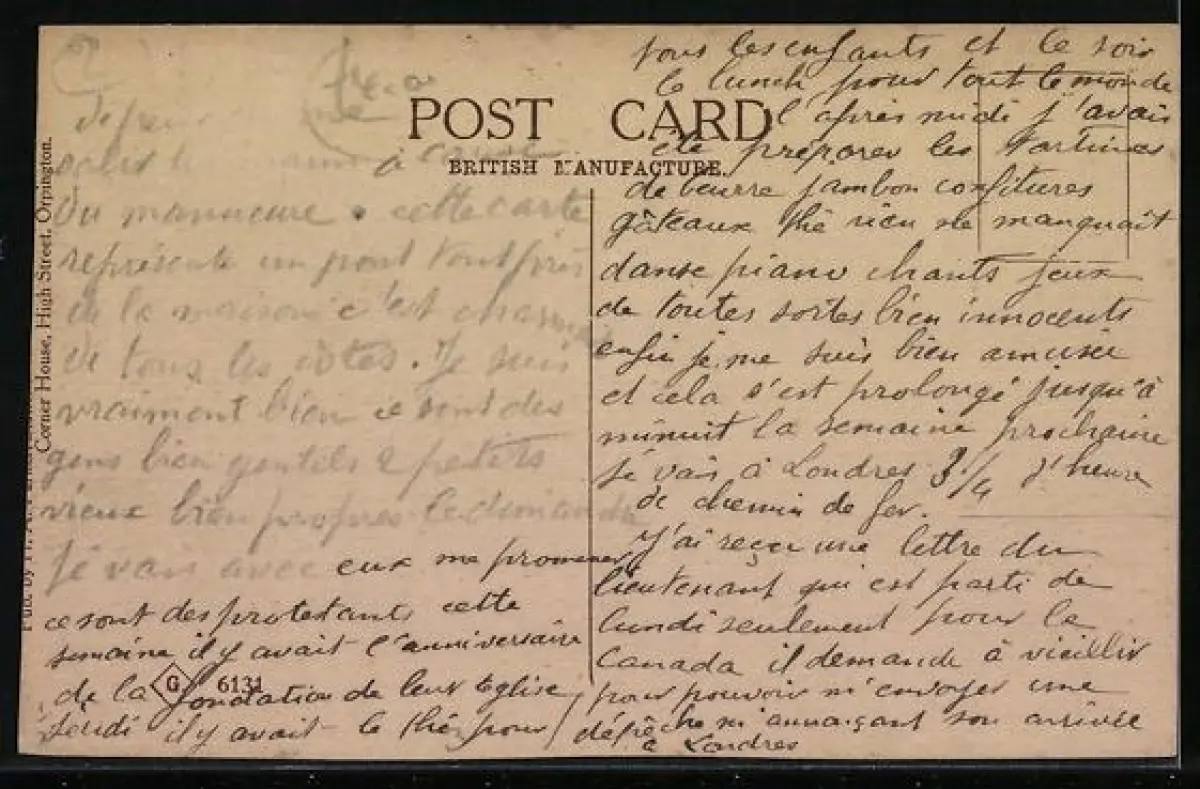 POST CARD
BRITISH MANUFACTURE.
Corner House, High Street, Orpington.
à
du manucure . cette carte
représente un pont tout près
de la maison c'est charmant
de tous les côtés. Je suis
vraiment bien ce sont des
gens bien gentils 2 petits
vieux bien propres le dimanche
je vais avec eux me promener
ce sont des protestants cette
semaine il y avait l'anniversaire
de la fondation de leur Eglise
G 6131
Jeudi il y avait le thé pour
tous les enfants et le soir
le lunch pour tout le monde
l'après midi j'avais
été préparer les tartines
de beurre jambon confitures
gâteaux thé rien ne manquait
danse piano chants jeux
de toutes sortes bien innocents
enfin je me suis bien amusée
et cela s'est prolongé jusqu'à
minuit la semaine prochaine
je vais à Londres 3/4 d'heure
de chemin de fer.
J'ai reçu une lettre du
lieutenant qui est parti de
lundi seulement pour le
Canada il demande à vieillir
pour pouvoir m'envoyer une
dépêche m'annonçant son arrivée
à Londres